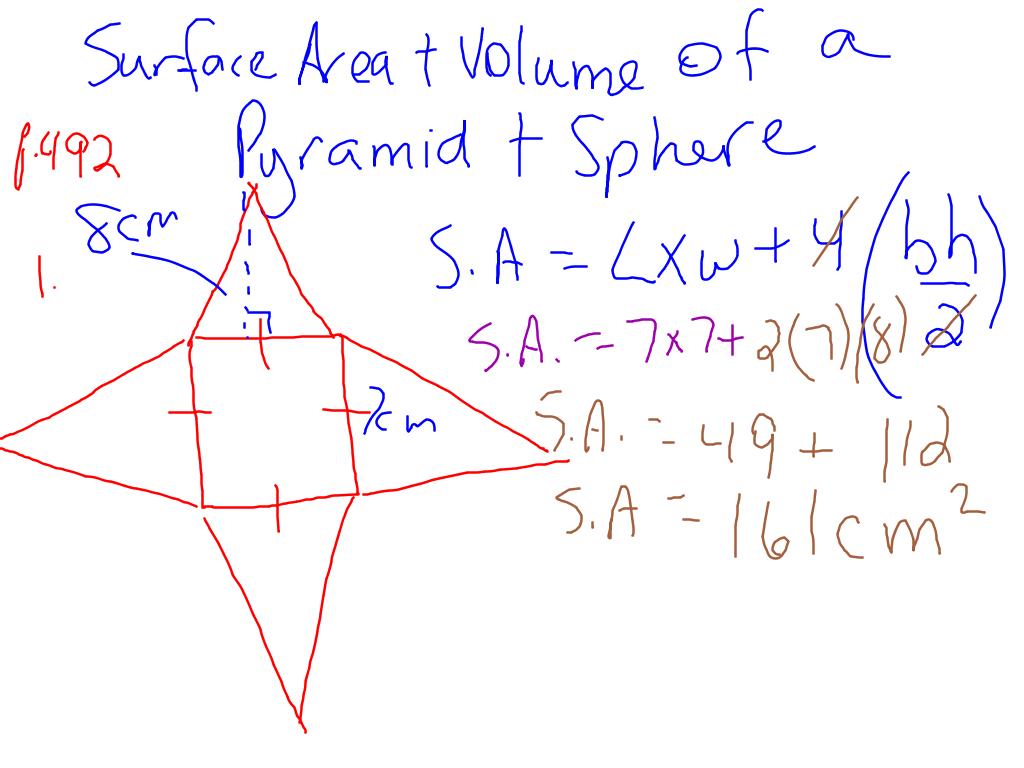 Surface Area + Volume of a
Pyramid + Sphere
p.492
8cm
1.
7cm
S.A = L x w + 4 (bh/2)
S.A. = 7x7 + 2(7)(8)
S.A. = 49 + 112
S.A = 161cm²